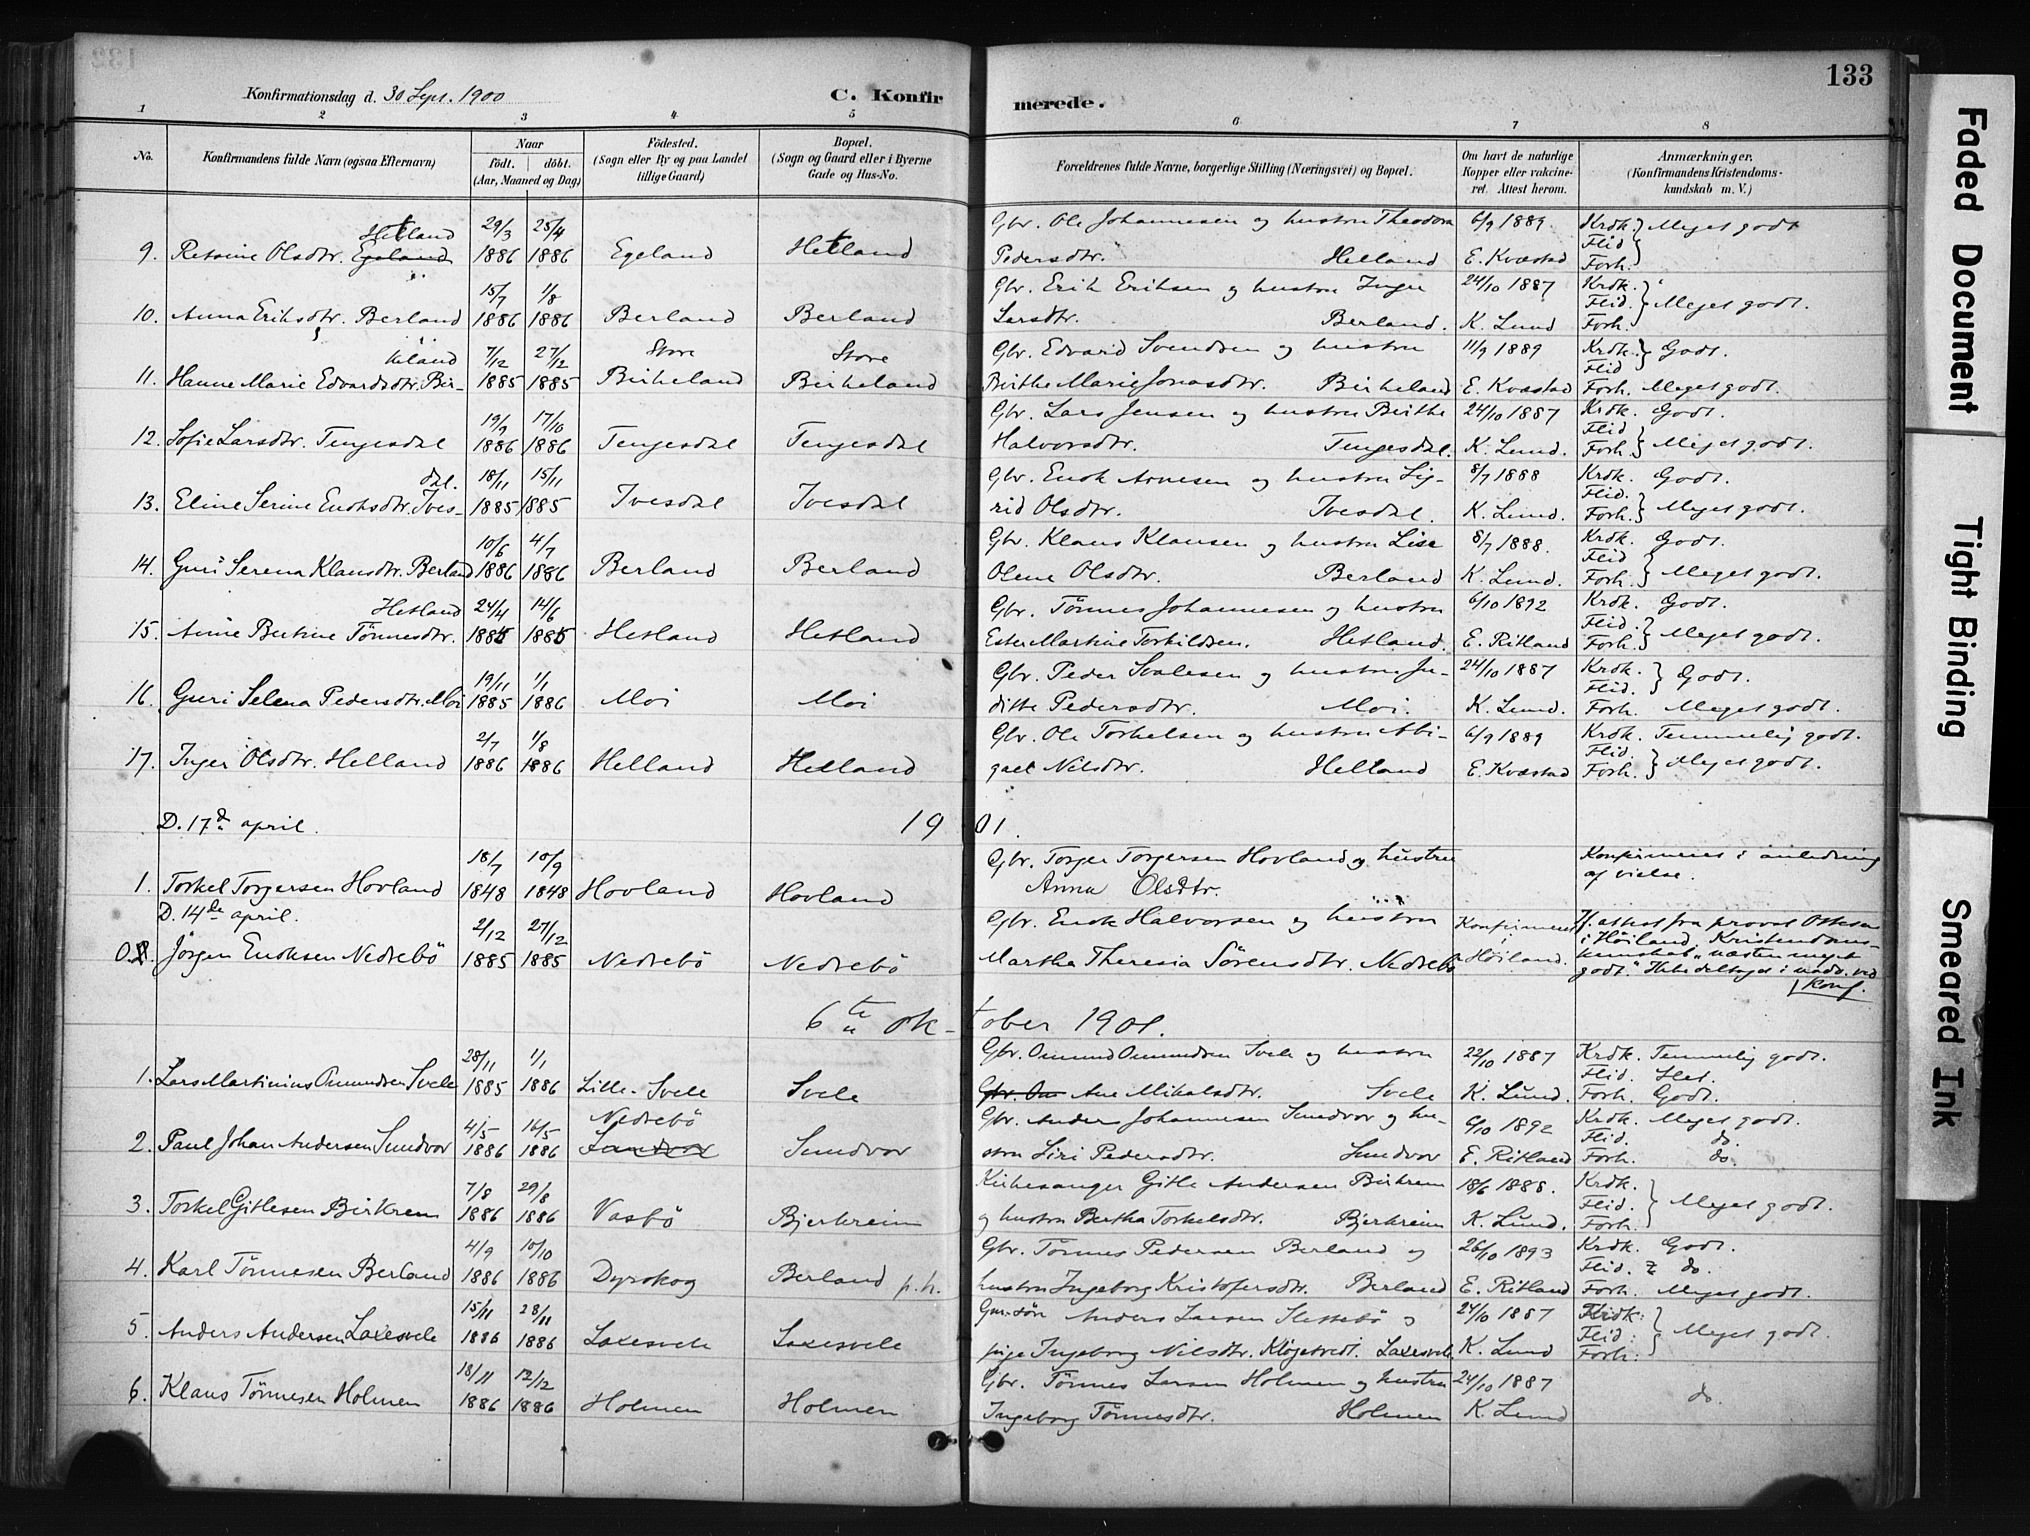 133
Konfirmationsdag d. 30 Sept. 1900
C. Konfirmerede.
1 2 3 4 5 6 7 8
No.
Konfirmandens fulde Navn (ogsaa Efternavn)
Naar
født. døbt.
(Aar, Maaned og Dag)
Fødested.
(Sogn eller By og paa Landet
tillige Gaard)
Bopæl.
(Sogn og Gaard eller i Byerne
Gade og Hus-No.
Forældrenes fulde Navne, borgerlige Stilling (Næringsvei) og Bopæl.
Om havt de naturlige
Kopper eller vakcine-
ret. Attest herom.
Anmærkninger.
(Konfirmandens Kristendoms-
kundskab m. V.)
Hetland 29/3 25/4 Gbr. Ole Johannesen og hustru Theodora 6/9 1889 Krdk. } Meget godt
9. Olsdtr. Egeland 1886 1886 Egeland Hetland Pedersdtr. Helland E. Kvæstad Flid Forh.
15/7 1/8 Gbr. Erik Eriksen og hustru Inger 24/10 1887 Krdk. Flid. } Meget godt.
10. Anna Eriksdtr. Berland 1886 1886 Berland Berland Larsdtr. Berland. K. Lund Forh.
keland 7/12 27/12 Store Store Gbr. Edvard Svendsen og hustru 11/9 1889 Krdk. } Godt. Flid
11. Hanne Marie Edvardsdtr. Bir- 1885 1885 Birkeland Birkeland Birthe Marie Jonasdtr. Birkeland E. Kvæstad Forh. Meget godt.
19/9 17/10 Gbr. Lars Jensen og hustru Birthe 24/10 1887 Krdk. Godt. Flid
12. Sofie Larsdtr. Tengesdal 1886 1886 Tengesdal Tengesdal Halvorsdtr. Tengesdal. K. Lund. Forh. } Meget godt.
dal. 18/11 15/11 Gbr. Enok Arnesen og hustru Sig- 8/7 1888 Krdk. Godt. Flid.
13. Eline Serine Enoksdtr. Ives- 1885 1885 Ivesdal Ivesdal rid Olsdtr. Ivesdal. K. Lund. Forh. } Meget godt.
10/6 4/7 Gbr. Klaus Klausen og hustru Lise 8/7 1888. Krdk. Godt. Flid
14. Guri Serena Klausdtr. Berland 1886 1886 Berland Berland Olene Olsdtr. Berland K. Lund. Forh. } Meget godt.
Hetland 24/4 14/6 Gbr. Tönnes Johannesen og hustru 6/10 1892 Krdk. Godt. Flid.
15. Anne Bertine Tönnesdtr. 1885 1885 Hetland Hetland Ester Martine Torkildsen. Hetland. E. Ritland Forh. } Meget godt.
19/11 1/1 Gbr. Peder Svalesen og hustru Ju- 24/10 1887 Krdk. Flid. } Godt.
16. Guri Selena Pedersdtr. Moi 1885 1886 Moi Moi ditte Pedersdtr. Moi. K. Lund. Forh. Meget godt.
2/7 1/8 Gbr. Ole Torkelsen og hustru Abi- 6/9 1889 Krdk. Temmelig godt. Flid.
17. Inger Olsdtr. Helland 1886 1886 Helland Helland gael Nilsdtr. Helland E. Kvæstad Forh. } Meget godt.
D. 17de april. 1901.
18/7 10/9 Gbr. Torger Torgersen Hovland og hustru Konfirmeres i anledning
1. Torkel Torgersen Hovland 1848 1848 Hovland Hovland Anna Olsdtr. af vielse.
D. 14de april. 2/12 27/12 Gbr. Enok Halvorsen og hustru Konfirmeret i Høiland. If. attest fra provst Ottesen
i Høiland, Kristendoms-
0. Jörgen Enoksen Nedrebö 1885 1885 Nedrebö Nedrebö Martha Theresia Sörensdtr. Nedrebö kundskab "næsten meget
godt." Ikke deltaget i nadv. ved
Konf.
6te oktober 1901.
28/11 1/1 Gbr. Omund Omundsen Svele og hustru 22/10 1887 Krdk. Temmelig godt. Flid.
1. Lars Martinius Omundsen Svele 1885 1886 Lille-Svele Svele Gbr. Om Ane Mikalsdtr. Svele K. Lund. Forh. Godt.
4/5 16/5 Nedrebö Gbr. Anders Johannesen Sundvor og hu- 6/10 1892 Krdk. Meget godt. Flid. do.
2. Paul Johan Andersen Sundvor 1886 1886 Sundvor Sundvor stru Siri Pedersdtr. Sundvor E. Ritland Forh. do.
7/8 29/8 Kirkesanger Gitle Andersen Birkrem 18/6 1888. Krdk. Flid. } Meget godt.
3. Torkel Gitlesen Birkrem 1886 1886 Vasbö Bjerkreim og hustru Bertha Torkelsdtr. Bjerkreim K. Lund. Forh.
4/9 10/10 Gbr. Tönnes Pedersen Berland og 26/10 1893 Krdk. Godt. Flid. do.
4. Karl Tönnesen Berland 1886 1886 Dyrskog Berland p.h. hustru Ingeborg Kristofersdtr. Berland E. Ritland Forh. Meget godt.
15/11 28/11 Anders Larsen Slettebö og 24/10 1887 Flid: } Meget godt.
5. Anders Andersen Laxesvele 1886 1886 Laxesvele Laxesvele pige Ingeborg Nilsdtr. Kløgetvedt. Laxesvele. K. Lund Forh:
18/11 12/12 Gbr. Tönnes Larsen Holmen og hustru 24/10 1887 do.
6. Klaus Tönnesen Holmen 1886 1886 Holmen Holmen Ingeborg Tönnesdtr. Holmen K. Lund
Faded Document
Tight Binding
Smeared Ink